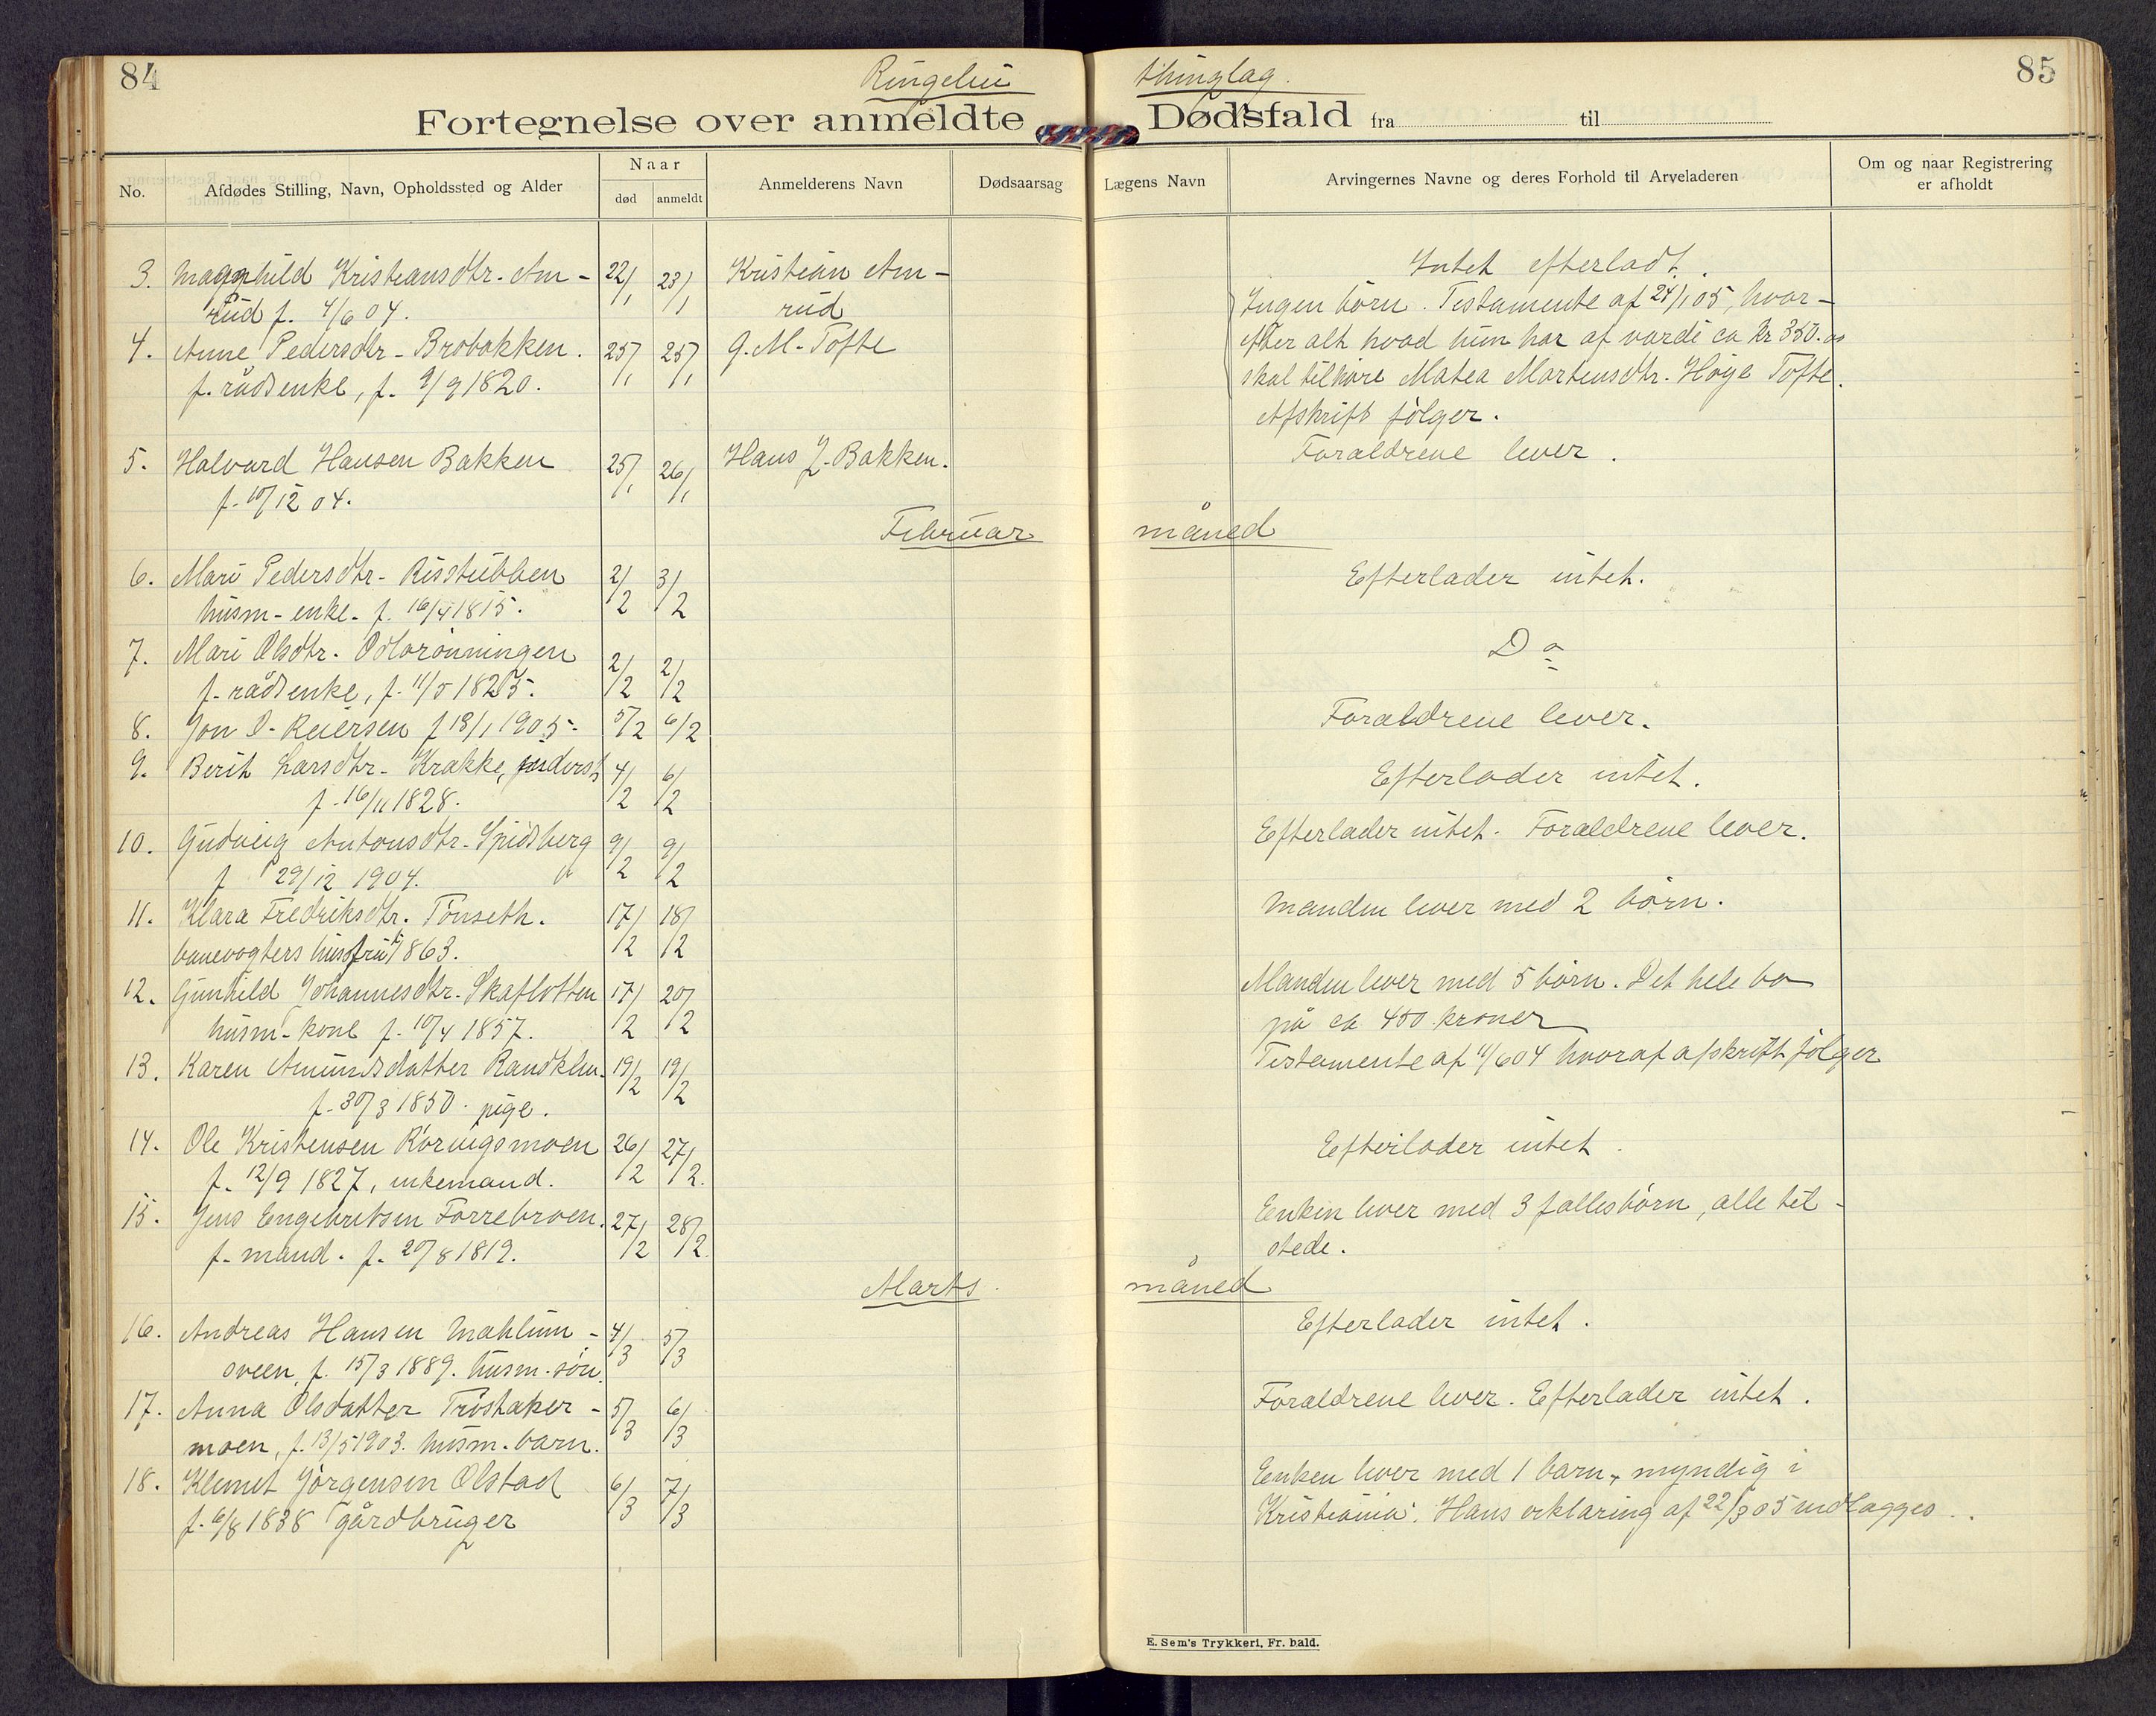 84
Ringebu thinglag.
85
Fortegnelse over anmeldte Dødsfald fra til
No.
Afdødes Stilling, Navn, Opholdssted og Alder
Naar
død
anmeldt
Anmelderens Navn
Dødsaarsag
Lægens Navn
Arvingernes Navne og deres Forhold til Arveladeren
Om og naar Registrering
er afholdt
3. Magnhild Kristiansdtr. Am- 22/1 23/1 Kristian Am- Intet efterladt.
rud f. 4/6 04. rud Ingen börn. Testamente af 24/1 05, hvor-
4. Anne Pedersdtr. Brobakken. 25/1 25/1 G. M. Tofte efter alt hvad hun har af værdi ca kr 350.00
f. rådsenke, f. 9/9 1820. skal tilhøre Matea Martensdtr. Høye Tofte.
Afskrift følger.
5. Halvard Hansen Bakken 25/1 26/1 Hans J. Bakken. Forældrene lever.
f. 10/12 04.
Februar måned
6. Mari Pedersdtr. Risstubben 2/2 3/2 Efterlader intet.
husm-enke. f. 16/4 1815.
7. Mari Olsdtr. Odlorönningen 2/2 2/2 Do
f. rådsenke, f. 11/5 1825.
8. Jon O. Reiersen f 18/1 1905. 5/2 6/2 Forældrene lever.
9. Berit Larsdtr. Krakke, inderst 4/2 6/2 Efterlader intet.
f. 16/11 1828.
10. Gudveig Antonsdtr. Spidsberg 9/2 9/2 Efterlader intet. Forældrene lever.
f 29/12 1904.
11. Klara Fredriksdtr. Tönseth. 17/2 18/2 Manden lever med 2 börn.
banevogters husfru 1863.
12. Gunhild Johannesdtr. Skaflotten 17/2 20/2 Manden lever med 5 börn. Det hele bo
husm-kone f. 10/4 1857. på ca 400 kroner
13. Karen Amundsdatter Randklev. 19/2 19/2 Testamente af 11/6 04 hvoraf afskrift følger
f. 30/3 1850. pige.
14. Ole Kristensen Rörvigsmoen 26/2 27/2. Efterlader intet.
f. 12/9 1827, enkemand.
15. Jens Engebretsen Forrebroen. 27/2 28/2. Enken lever med 3 fællesbörn, alle til-
f-mand. f. 20/8 1819. stede.
Marts måned
16. Andreas Hansen Mæhlum- 4/3 5/3 Efterlader intet.
sveen, f. 15/3 1889. husm. sön.
17. Anna Olsdatter Trostaker- 5/3 6/3 Forældrene lever. Efterlader intet.
moen, f. 13/5 1903. husm. barn.
18. Klemet Jörgensen Olstad 6/3 7/3 Enken lever med 1 barn, myndig i
f. 6/8 1838 gårdbruger Kristiania. Hans erklæring af 22/3 05 indlægges.
E. Sem's Trykkeri, Fr. hald.